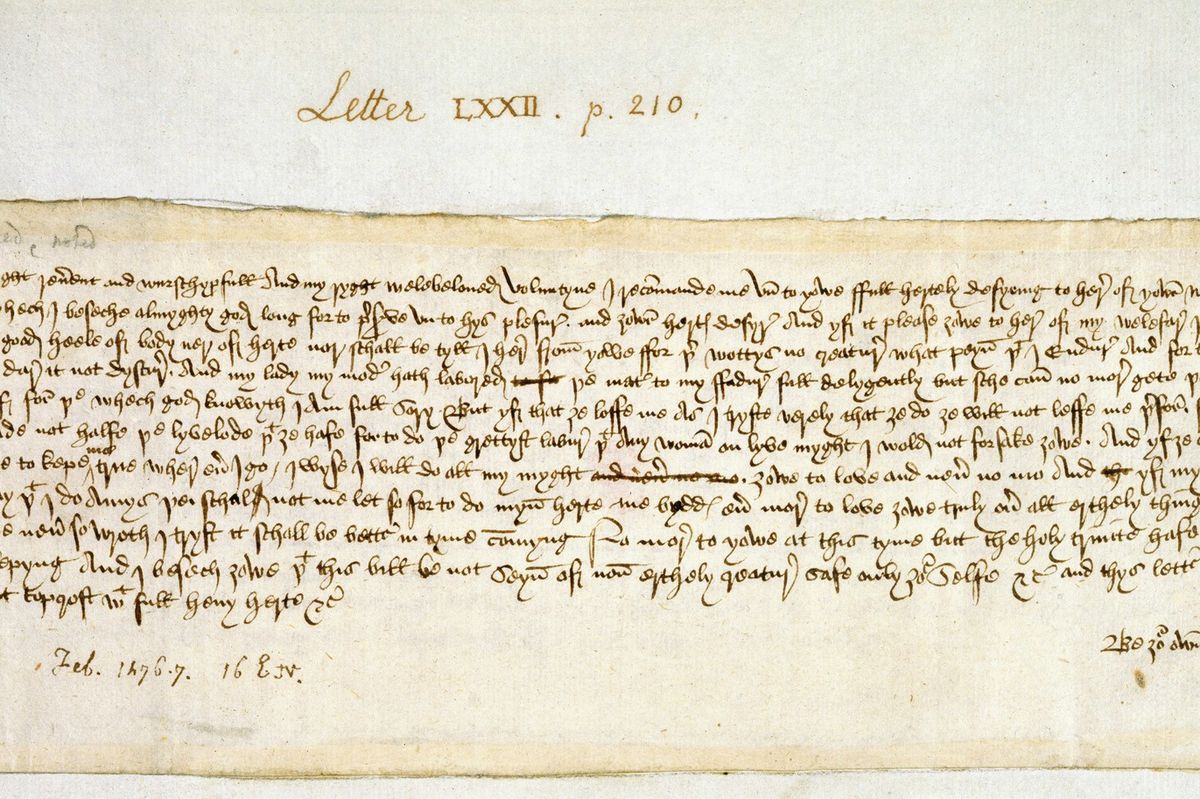 Letter LXXII. p. 210.
noted
ght reũent and wurschypfull And my ryght welebeloued voluntyne I recõmande me vn to yowe ffull hertely desyring to her̃ of yowr̃
hech I beseche almyghty god long for to p̃s̃ve vn to hys plesur̃. and zowr̃ hert̃ desyr̃ And yf it please zowe to her̃ of my welefar̃ I
good heele of body ner of herte nor schall be tyll I her̃ from yowe ffor þ̃ wottys no creatur̃ what peyñ þᵗ I Endur̃ And for
dar̃ it not dyscur̃. And my lady my mod̃ hath labored þe mat̃ to my ffadur̃ full delygently but sche cañ no mor̃ gete þ
for þe whech god knowyth I Am full Sory But yf that ze loffe me As I tryste verely that ze do ze will not leffe me þ̃for̃.
de not halfe þe lyvelode þᵗ ze hafe for to do þe grettyst labur̃ þᵗ Any womã on lyve myght I wold not forsake zowe. And yf ze
e to kepe me trwe wher eũ I go / I wyse I will do all my myght and neũ no mo. zowe to love and neũ no mo And yf my
y þᵗ I do Amys þei schall not me let so for to do myñ herte me bydd̃ eũ mor̃ to love zowe truly oũ all erthely thing
e neũ so wroth I tryst it schall be bett̃ in tyme cõmyng No mor̃ to yowe at this tyme but the holy trinite hafe
epyng And I besech zowe þᵗ this bill be not Seyñ of noñ erthely creatur̃ safe only zoʳ Selfe &c̃ and thys lett̃
t topcroft wᵗ full heuy herte &c̃
Be zoʳ own
Feb. 1476.7. 16 E.IV.